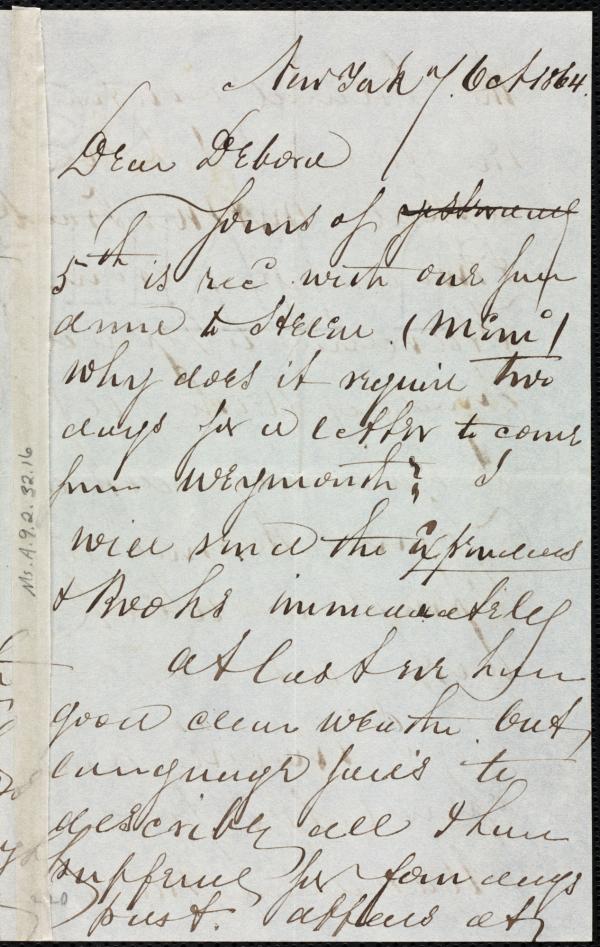 New York 7. Oct 1864.
Dear Debora
Yours of yesterday
5th is recd with one from
Anne to Helen. (Memo)
why does it require two
days for a letter to come
from Weymouth? I
will send the
& Books immediately
At last we have
good clear weather. but,
language fails to
describe all I have
suffered for four days
past. affairs at
Ms. A. 9. 2. 32. 16